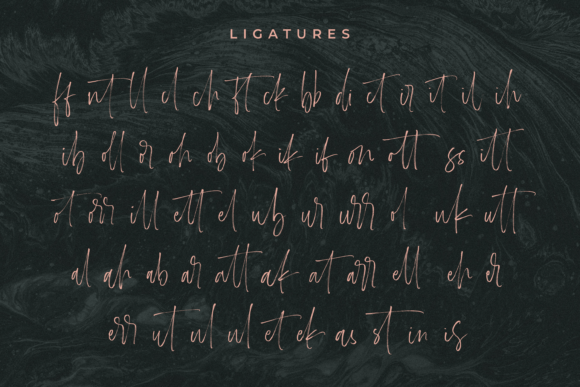 LIGATURES
ff nt ll cl ch ft ck bb di ct ir it il ih
ib oll or oh ob ok ik if on ott ss itt
ot orr ill ett el ub ur urr ol uk utt
al ah ab ar att ak at arr ell eh er
err ut ul ul et ek as st in is